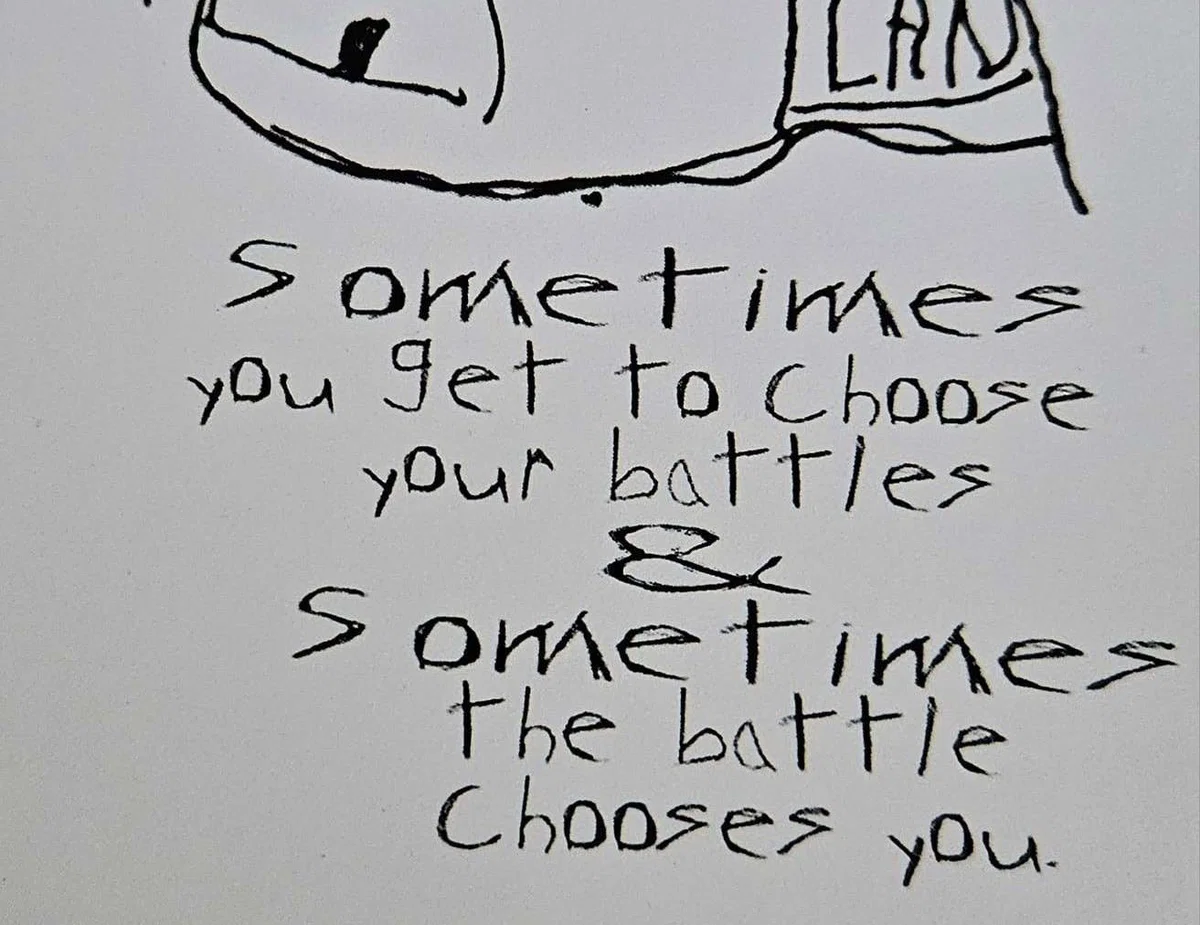 LAN
Sometimes
you get to choose
your battles
&
Sometimes
the battle
Chooses you.